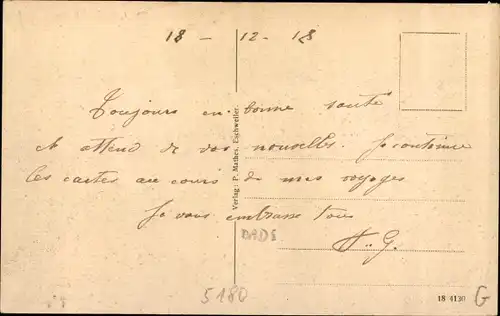 18 - 12 - 18
Toujours en bonne santé
et attend de vos nouvelles. Je continue
les cartes au cours de mes voyages
Je vous embrasse tous
H. G.
Verlag: P. Mathes, Eschweiler.
5180
18 4130
G